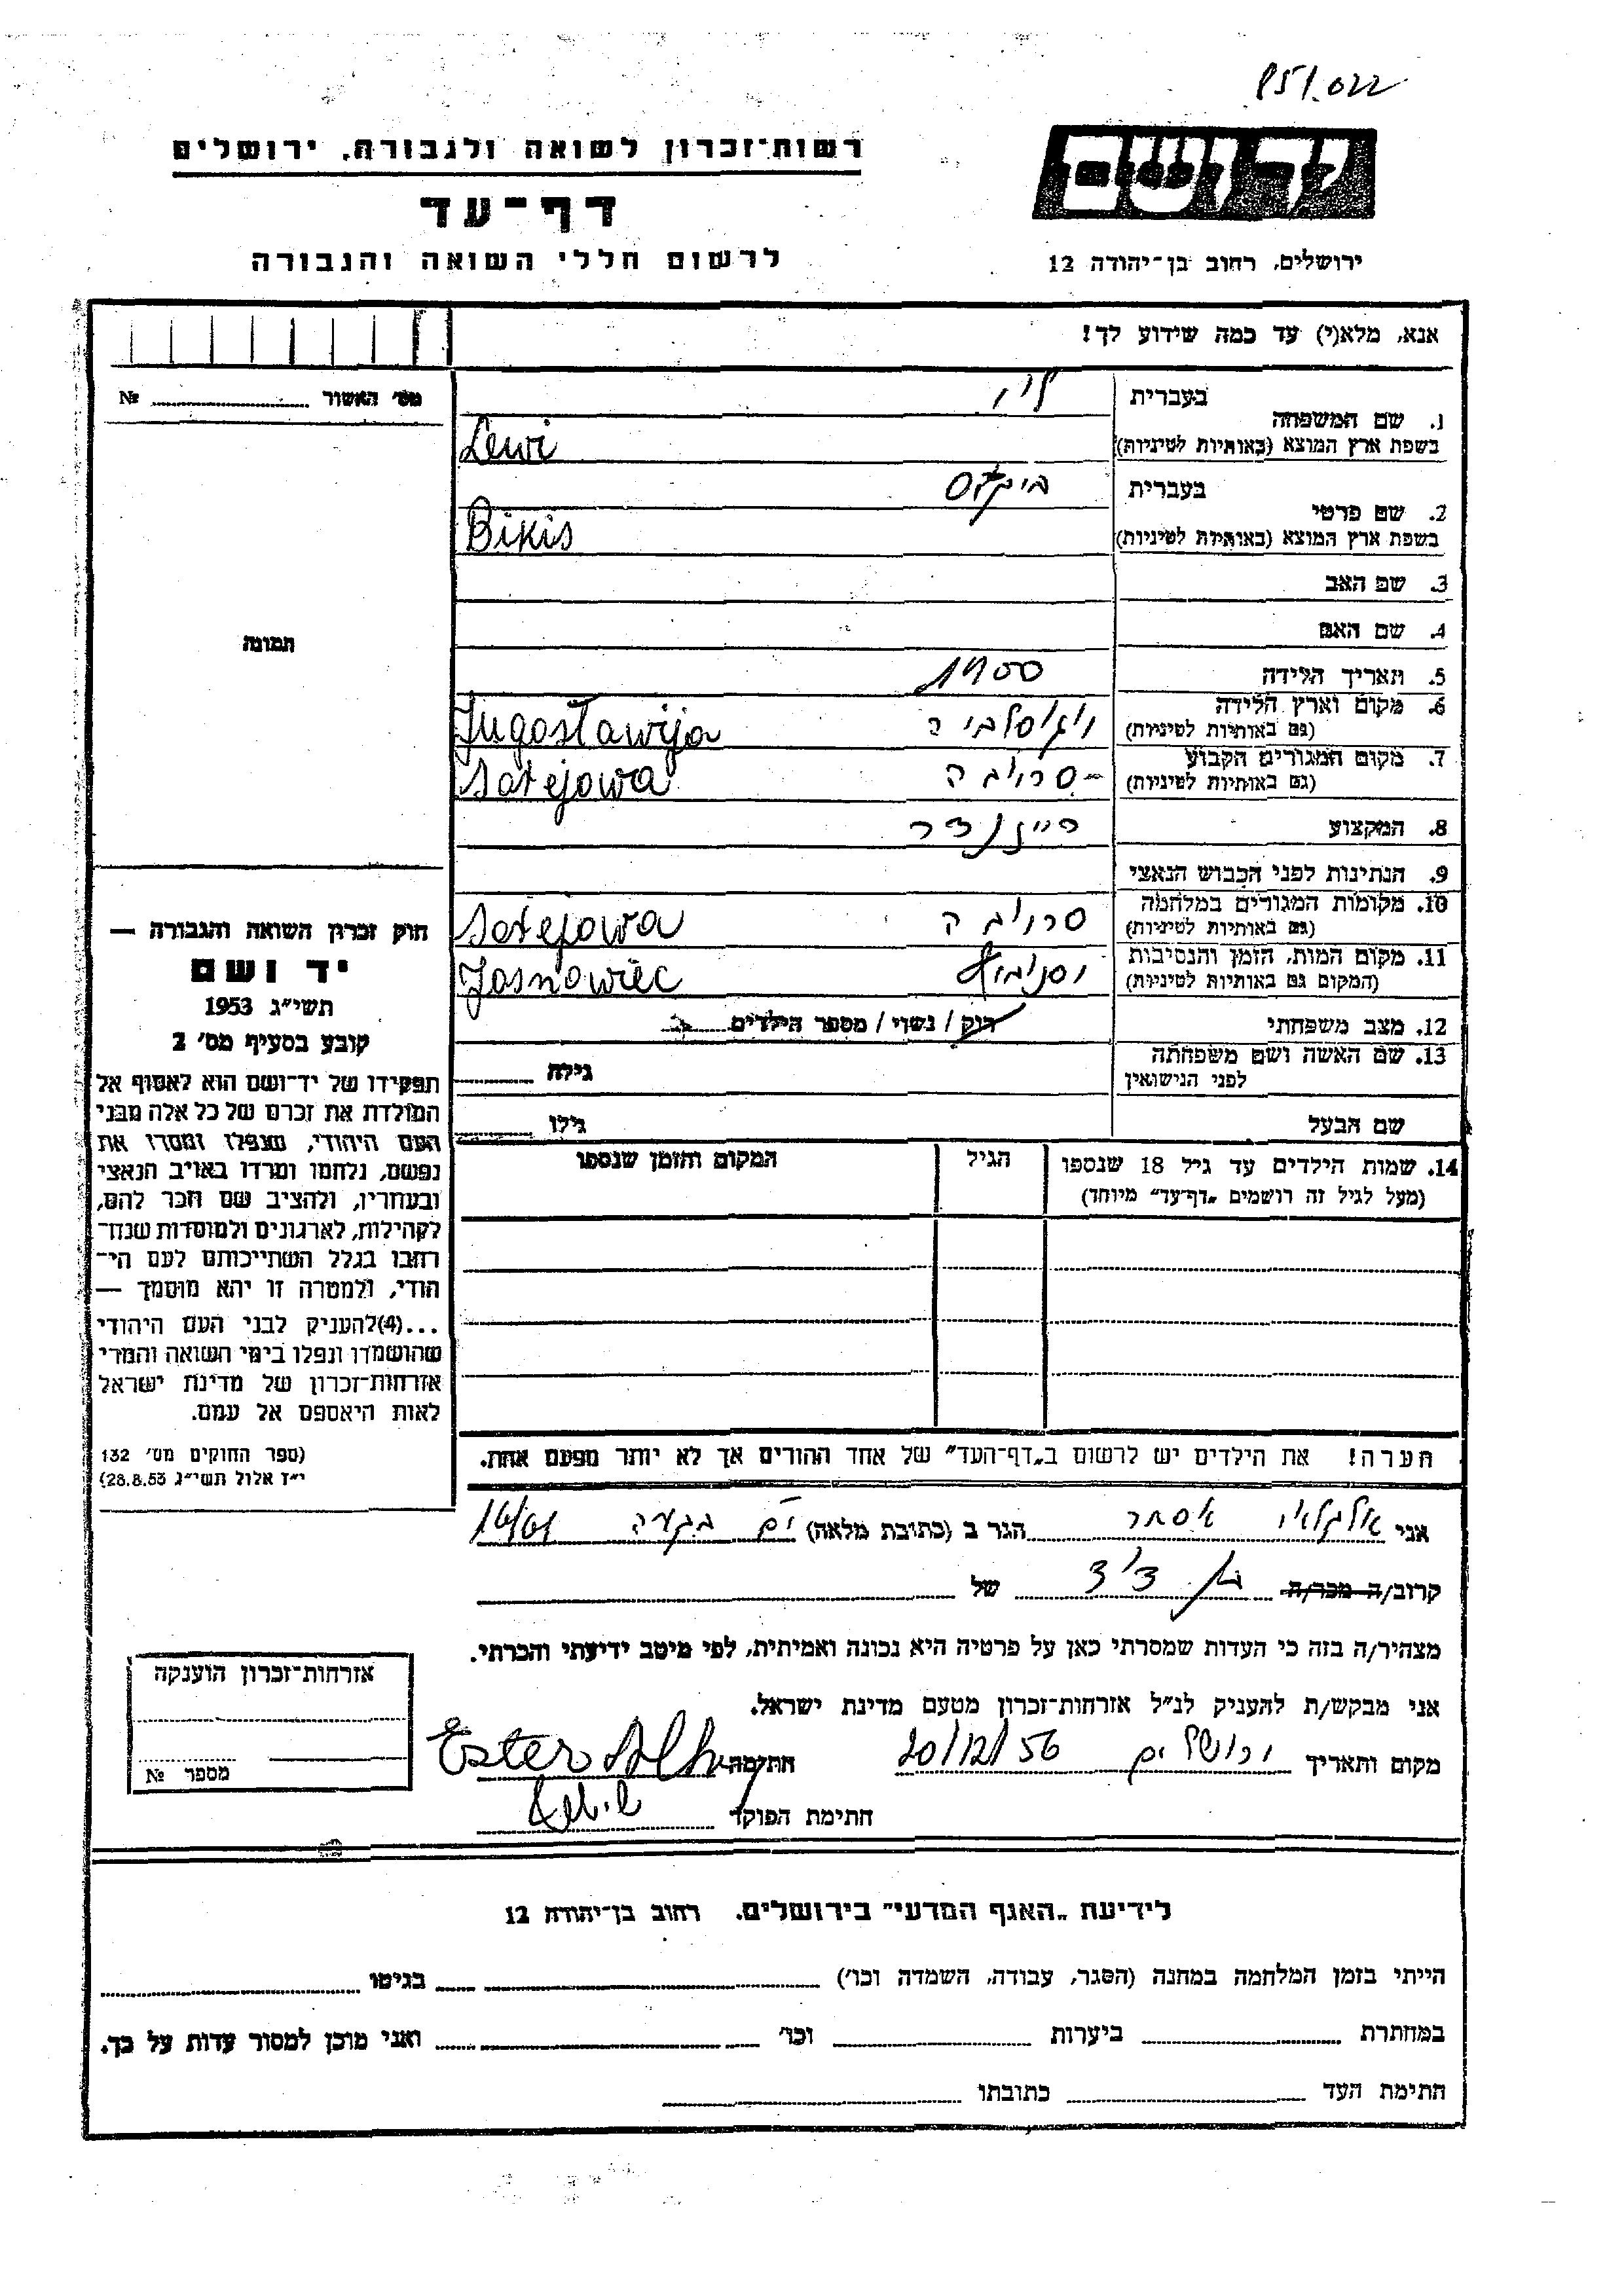 PS1.022
רשות־זכרון לשואה ולגבורה, ירושלים
דף־עד
לרשום חללי השואה והגבורה
יד ושם
ירושלים, רחוב בן־יהודה 12
אנא, מלא(י) עד כמה שידוע לך!
מס׳ האשור № 
1. שם המשפחה בעברית לוי
בשפת ארץ המוצא (באותיות לטיניות) Lewi
2. שם פרטי בעברית
בשפת ארץ המוצא (באותיות לטיניות) Bikis
3. שם האב
4. שם האם
5. תאריך הלידה 1900
6. מקום וארץ הלידה
(גם באותיות לטיניות) Jugoslawija
7. מקום המגורים הקבוע
(גם באותיות לטיניות)
8. המקצוע
9. הנתינות לפני הכבוש הנאצי
10. מקומות המגורים במלחמה
(גם באותיות לטיניות)
11. מקום המות, הזמן והנסיבות
(המקום גם באותיות לטיניות) Jasnowiec
12. מצב משפחתי רוק / נשוי / מספר הילדים
13. שם האשה ושם משפחתה
לפני הנישואין גילה
שם הבעל גילו
14. שמות הילדים עד גיל 18 שנספו הגיל המקום והזמן שנספו
(מעל לגיל זה רושמים „דף־עד״ מיוחד)
הערה! את הילדים יש לרשום ב„דף־העד״ של אחד ההורים אך לא יותר מפעם אחת.
תמונה
חוק זכרון השואה והגבורה —
יד ושם
תשי״ג 1953
קובע בסעיף מס׳ 2
תפקידו של יד־ושם הוא לאסוף אל
המולדת את זכרם של כל אלה מבני
העם היהודי, שנפלו ומסרו את
נפשם, נלחמו ומרדו באויב הנאצי
ובעוזריו, ולהציב שם וזכר להם,
לקהילות, לארגונים ולמוסדות שנח־
רבו בגלל השתייכותם לעם הי־
הודי, ולמטרה זו יהא מוסמך —
...(4)להעניק לבני העם היהודי
שהושמדו ונפלו בימי השואה והמרי
אזרחות־זכרון של מדינת ישראל
לאות היאספם אל עמם.
(ספר החוקים מס׳ 132
י״ז אלול תשי״ג 28.8.53)
אני אלקלאי אסתר הגר ב (כתובת מלאה)
קרוב/ה מכר/ה של
מצהיר/ה בזה כי העדות שמסרתי כאן על פרטיה היא נכונה ואמיתית, לפי מיטב ידיעתי והכרתי.
אני מבקש/ת להעניק לנ״ל אזרחות־זכרון מטעם מדינת ישראל.
מקום ותאריך ירושלים 20/12/56 חתימה Ester
חתימת הפוקד
אזרחות־זכרון הוענקה
מספר №
לידיעת „האגף המדעי״ בירושלים, רחוב בן־יהודה 12
הייתי בזמן המלחמה במחנה (הסגר, עבודה, השמדה וכו׳) בגיטו
במחתרת ביערות וכו׳ ואני מוכן למסור עדות על כך.
חתימת העד כתובתו